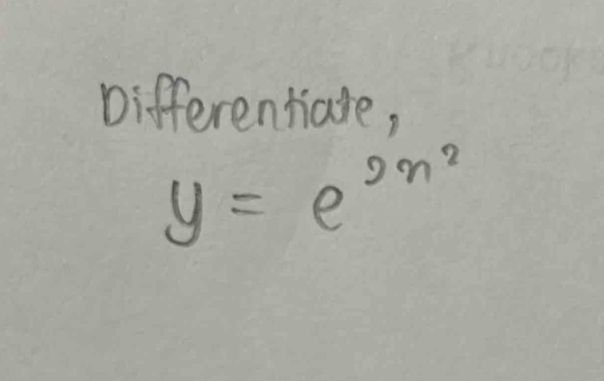 Differentiate,
y = e^{2x^2}